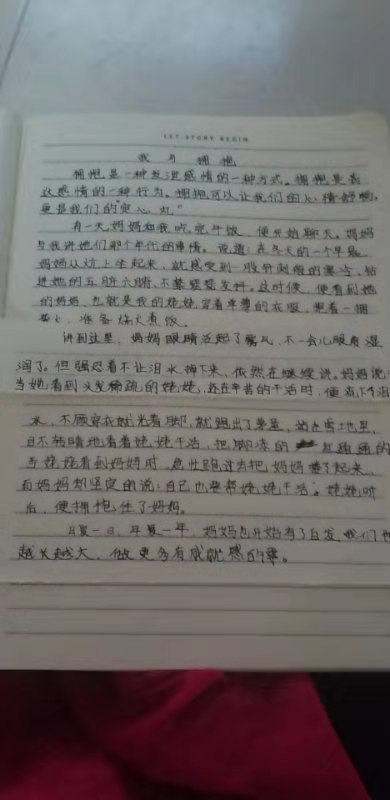 LET STORY BEGIN
我与拥抱
拥抱是一种发泄感情的一种方式。拥抱是表
达感情的一种行为。拥抱可以让我们的心情舒畅,
更是我们的"定心丸"
有一天妈妈和我吃完午饭,便开始聊天,妈妈
与我讲她们那个年代的事情。说道:在冬天的一个早晨
妈妈从炕上坐起来,就感受到一股针刺般的寒冷,钻
进她的五脏六腑,不禁瑟瑟发抖。这时候,便看到她
的妈妈,也就是我的姥姥,穿着单薄的衣服,抱着一捆
柴火,准备烧火煮饭。
讲到这里,妈妈眼睛泛起了雾气,不一会儿眼角湿
润了。但强忍着不让泪水掉下来,依然在继续说,妈妈说:
当她看到头发稀疏的姥姥,还在辛苦的干活时,便流下了泪
水,不顾穿衣就光着脚,就跑出了,站在雪地里,
目不转睛地看着姥姥干活,把脚冻的红通通的
姥姥看到妈妈时,急忙跑过去把妈妈抱了起来,
而妈妈却坚定的说:自己也要帮姥姥干活"。姥姥听
后,便拥抱住了妈妈。
日复一日,年复一年,妈妈也开始有了白发,我们
越长越大,做更多有成就感的事。